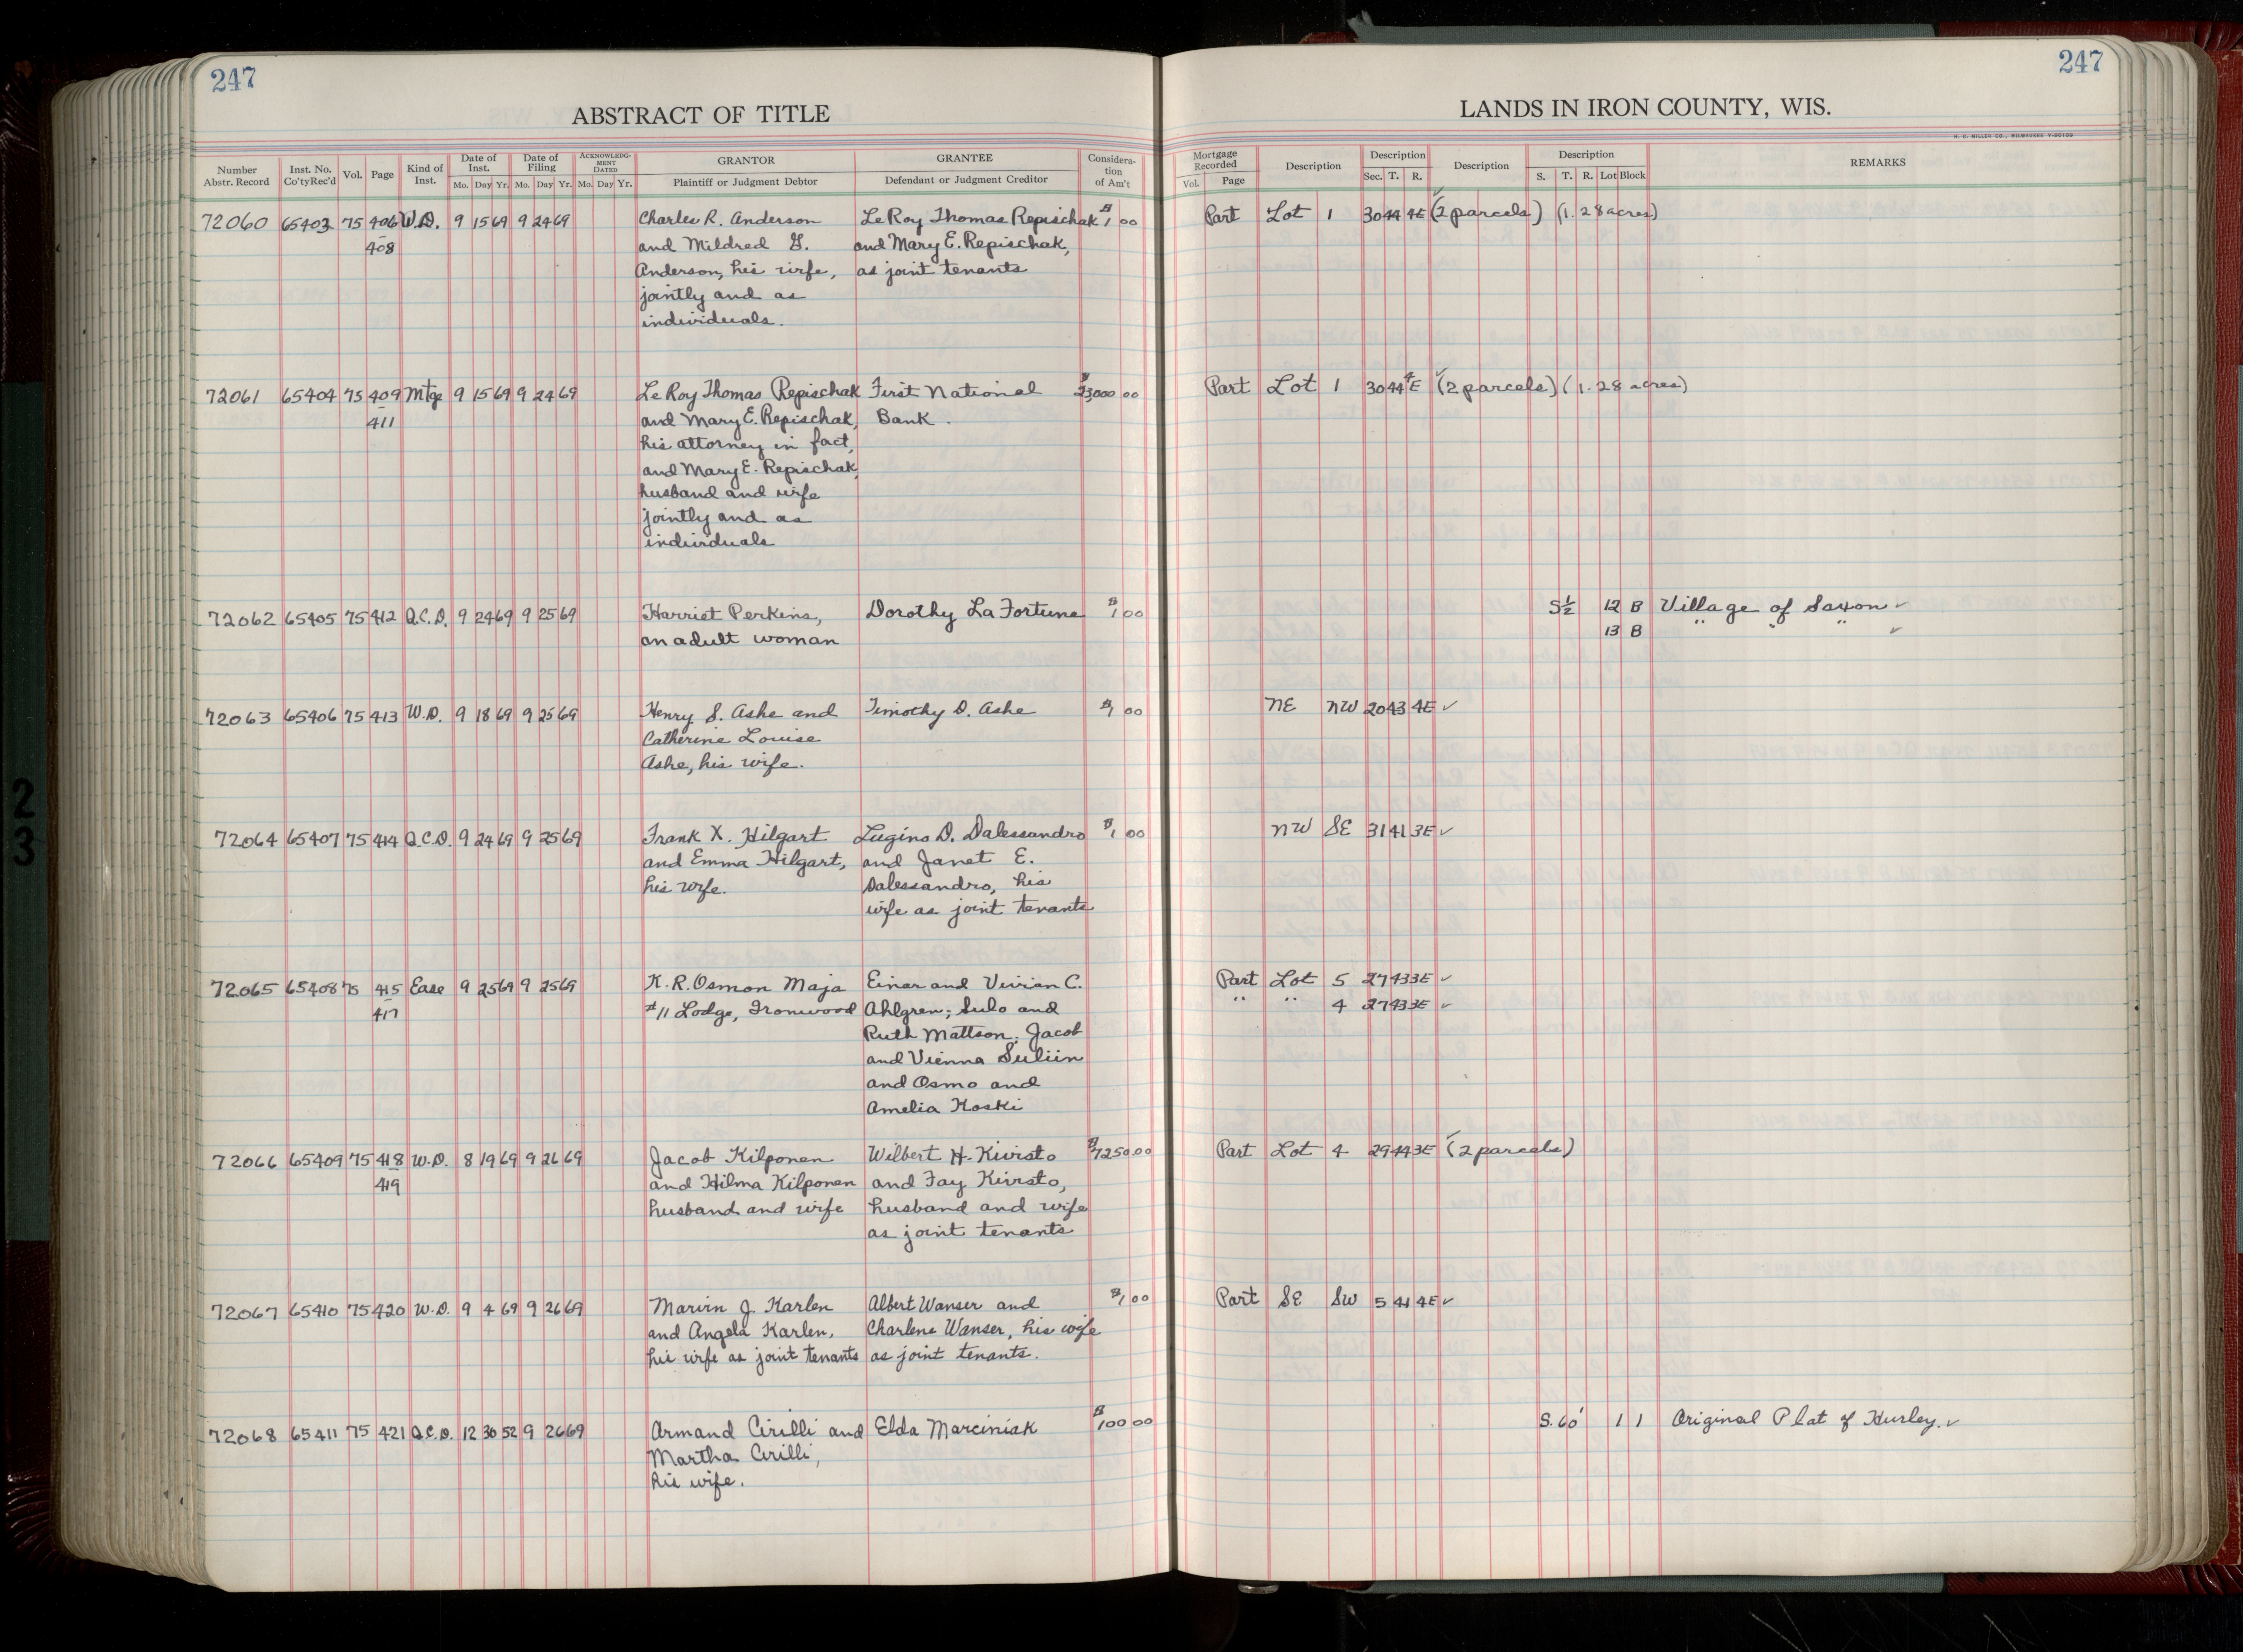 247
247
ABSTRACT OF TITLE
LANDS IN IRON COUNTY, WIS.
H. C. MILLER CO., MILWAUKEE
Number Abstr. Record Inst. No. Co'tyRec'd Vol. Page Kind of Inst. Date of Inst. Mo. Day Yr. Date of Filing Mo. Day Yr. ACKNOWLEDGMENT DATED Mo. Day Yr. GRANTOR Plaintiff or Judgment Debtor GRANTEE Defendant or Judgment Creditor Consideration of Am't
Mortgage Recorded Vol. Page Description Description Sec. T. R. Description Description S. T. R. Lot Block REMARKS
72060 65403 75 406 W.D. 9 15 69 9 24 69 Charles R. Anderson LeRoy Thomas Repischak $1 00 Part Lot 1 30 44 4E (2 parcels) (1.28 acres)
408 and Mildred G. and Mary E. Repischak,
Anderson, his wife, as joint tenants
jointly and as
individuals.
72061 65404 75 409 Mtge 9 15 69 9 24 69 LeRoy Thomas Repischak First National $23,000 00 Part Lot 1 30 44 4E (2 parcels) (1.28 acres)
411 and Mary E. Repischak, Bank.
his attorney in fact,
and Mary E. Repischak,
husband and wife
jointly and as
individuals
72062 65405 75 412 Q.C.D. 9 24 69 9 25 69 Harriet Perkins, Dorothy LaFortune $1 00 S½ 12 B Village of Saxon ✓
an adult woman 13 B " " " ✓
72063 65406 75 413 W.D. 9 18 69 9 25 69 Henry S. Ashe and Timothy D. Ashe $1 00 NE NW 20 43 4E ✓
Catherine Louise
Ashe, his wife.
72064 65407 75 414 Q.C.D. 9 24 69 9 25 69 Frank X. Hilgart Lugino D. Dalessandro $1 00 NW SE 31 41 3E ✓
and Emma Hilgart, and Janet E.
his wife. Dalessandro, his
wife as joint tenants
72065 65408 75 415 Ease 9 25 69 9 25 69 K. R. Osmon Maja Einar and Vivian C. Part Lot 5 27 43 3E ✓
417 #11 Lodge, Ironwood Ahlgren; Sulo and " " 4 27 43 3E ✓
Ruth Mattson; Jacob
and Vienna Suliin
and Osmo and
Amelia Koski
72066 65409 75 418 W.D. 8 19 69 9 26 69 Jacob Kilponen Wilbert H. Kivisto $7250 00 Part Lot 4 29 44 3E (2 parcels)
419 and Hilma Kilponen and Fay Kivisto,
husband and wife husband and wife
as joint tenants
72067 65410 75 420 W.D. 9 4 69 9 26 69 Marvin J. Karlen Albert Wanser and $1 00 Part SE SW 5 41 4E ✓
and Angela Karlen, Charlene Wanser, his wife
his wife as joint tenants as joint tenants.
72068 65411 75 421 Q.C.D. 12 30 52 9 26 69 Armand Cirilli and Elda Marciniak $100 00 S. 60' 1 1 Original Plat of Hurley. ✓
Martha Cirilli,
his wife.
2
3